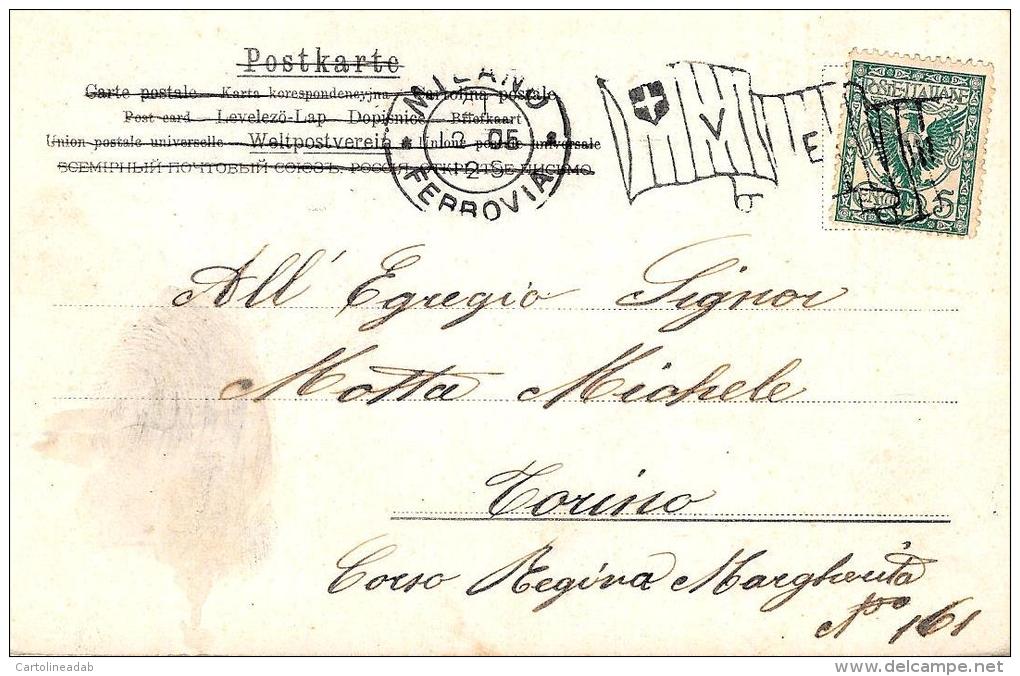 Postkarte
Carte postale – Karta korespondencyjna – Cartolina postale
Post card – Levelező-Lap – Dopisnice – Brefkaart
Union postale universelle – Weltpostverein – Unione postale universale
ВСЕМІРНЫЙ ПОЧТОВЫЙ СОЮЗЪ. РОССІЯ. ОТКРЫТОЕ ПИСЬМО.
MILANO
2 05
2 S
FERROVIA
V E
POSTE ITALIANE
CENT. 5
All' Egregio Signor
Motta Michele
Torino
Corso Regina Margherita
No 161
Cartolineadab
delcampe.net